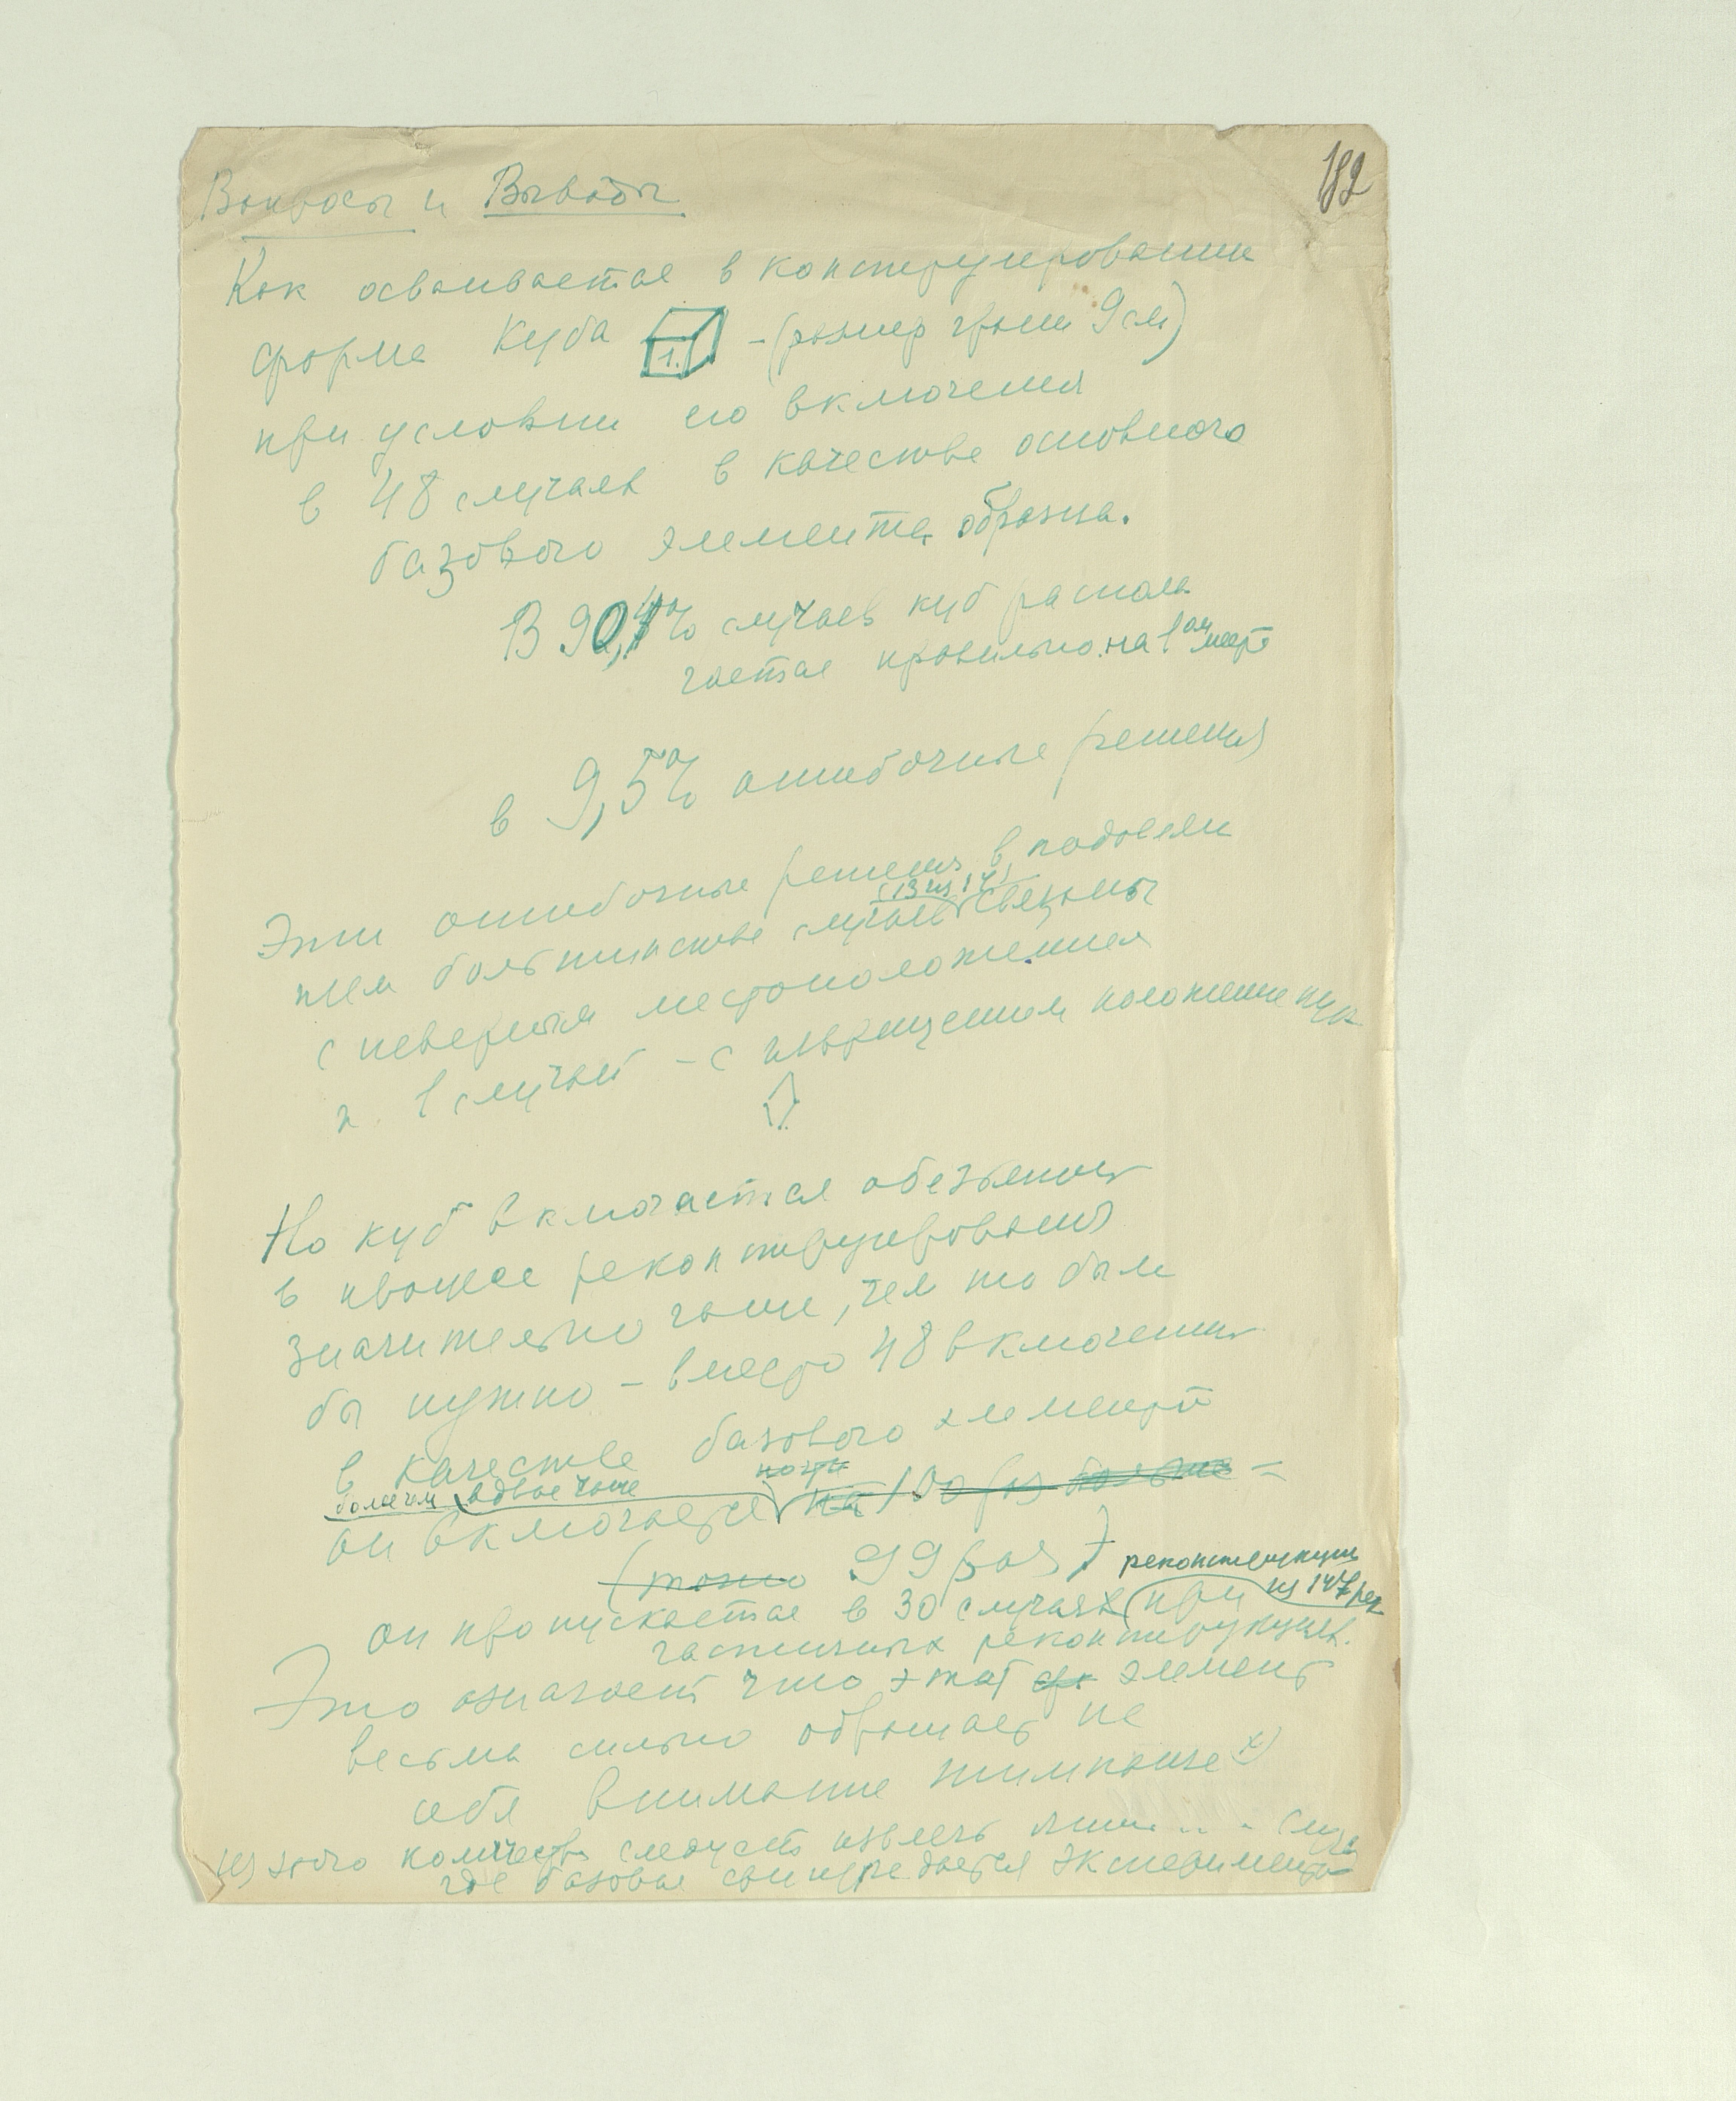 182
Вопросы и Выводы
Как осваивается в конструировании
форма куба 1. – (размер грани 9 см)
при условии его включения
в 48 случаях в качестве основного
базового элемента образца.
В 90,4% случаев куб распола
гается правильно на 1ом месте
в 9,5% ошибочные решения
Эти ошибочные решения в подавляю
щем большинстве случаев (13 из 14) связаны
с неверным местоположением
и 1 случай – с извращением положения куба
Но куб включается обезьяной
в процессе реконструирования
значительно чаще, чем то было
бы нужно – вместо 48 включений
в качестве базового элемента
более чем вдвое чаще почти
он включается на 100 раз больше –
(точно 99 раз) реконструкции
он пропускается в 30 случаях (при из 147 рек
частичных реконструкциях.
Это означает что этот элемент
весьма сильно обращает на
себя внимание шимпанзе х)
из этого количества следует извлечь лишь ... случаи
где базовая фигура дается экспериментатором